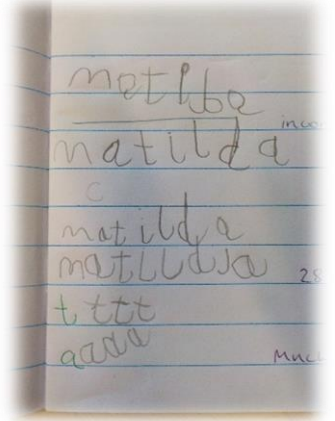 matilba
matilda
c
matilda
matilda
t ttt
aaaa